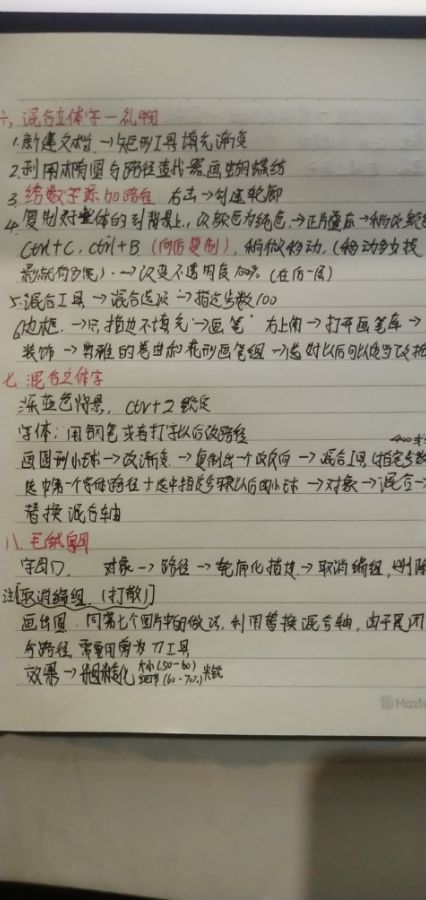 六、混合立体字一礼物
1.新建文档.→矩形工具填充渐变
2.利用椭圆与路径查找器画出蝴蝶结
3.给数字添加路径 右击→创建轮廓
4.复制对整体的到背景上，改颜色为纯色.→正片叠底→稍改颜色
Ctrl+C，ctrl+B（向后复制），稍微移动，（移动多少投
影就有多宽）.→改变不透明度100%（在后一层）
5.混合工具→混合选项→指定步数100
6.边框.→只描边不填充→画笔 右上角→打开画笔库→
装饰→典雅的卷曲和花形画笔组→
七、混合立体字
深蓝色背景，Ctrl+2锁定
字体：用钢笔或者打字以后改路径
画圆到小球→改渐变→复制出一个改反向→混合工具（指定步数
选中第一个字体路径+选中指定步骤以后的小球→对象→混合→
替换混合轴
八、毛绒字
对象→路径→轮廓化描边→取消编组，删除
注[取消编组，(打散)]
画丝圆.同第七个图片中的做法，利用替换混合轴，由于是闭
合路径 需要用剪刀工具
效果→粗糙化 大小(50-60) 细节(60-70)
Maxle